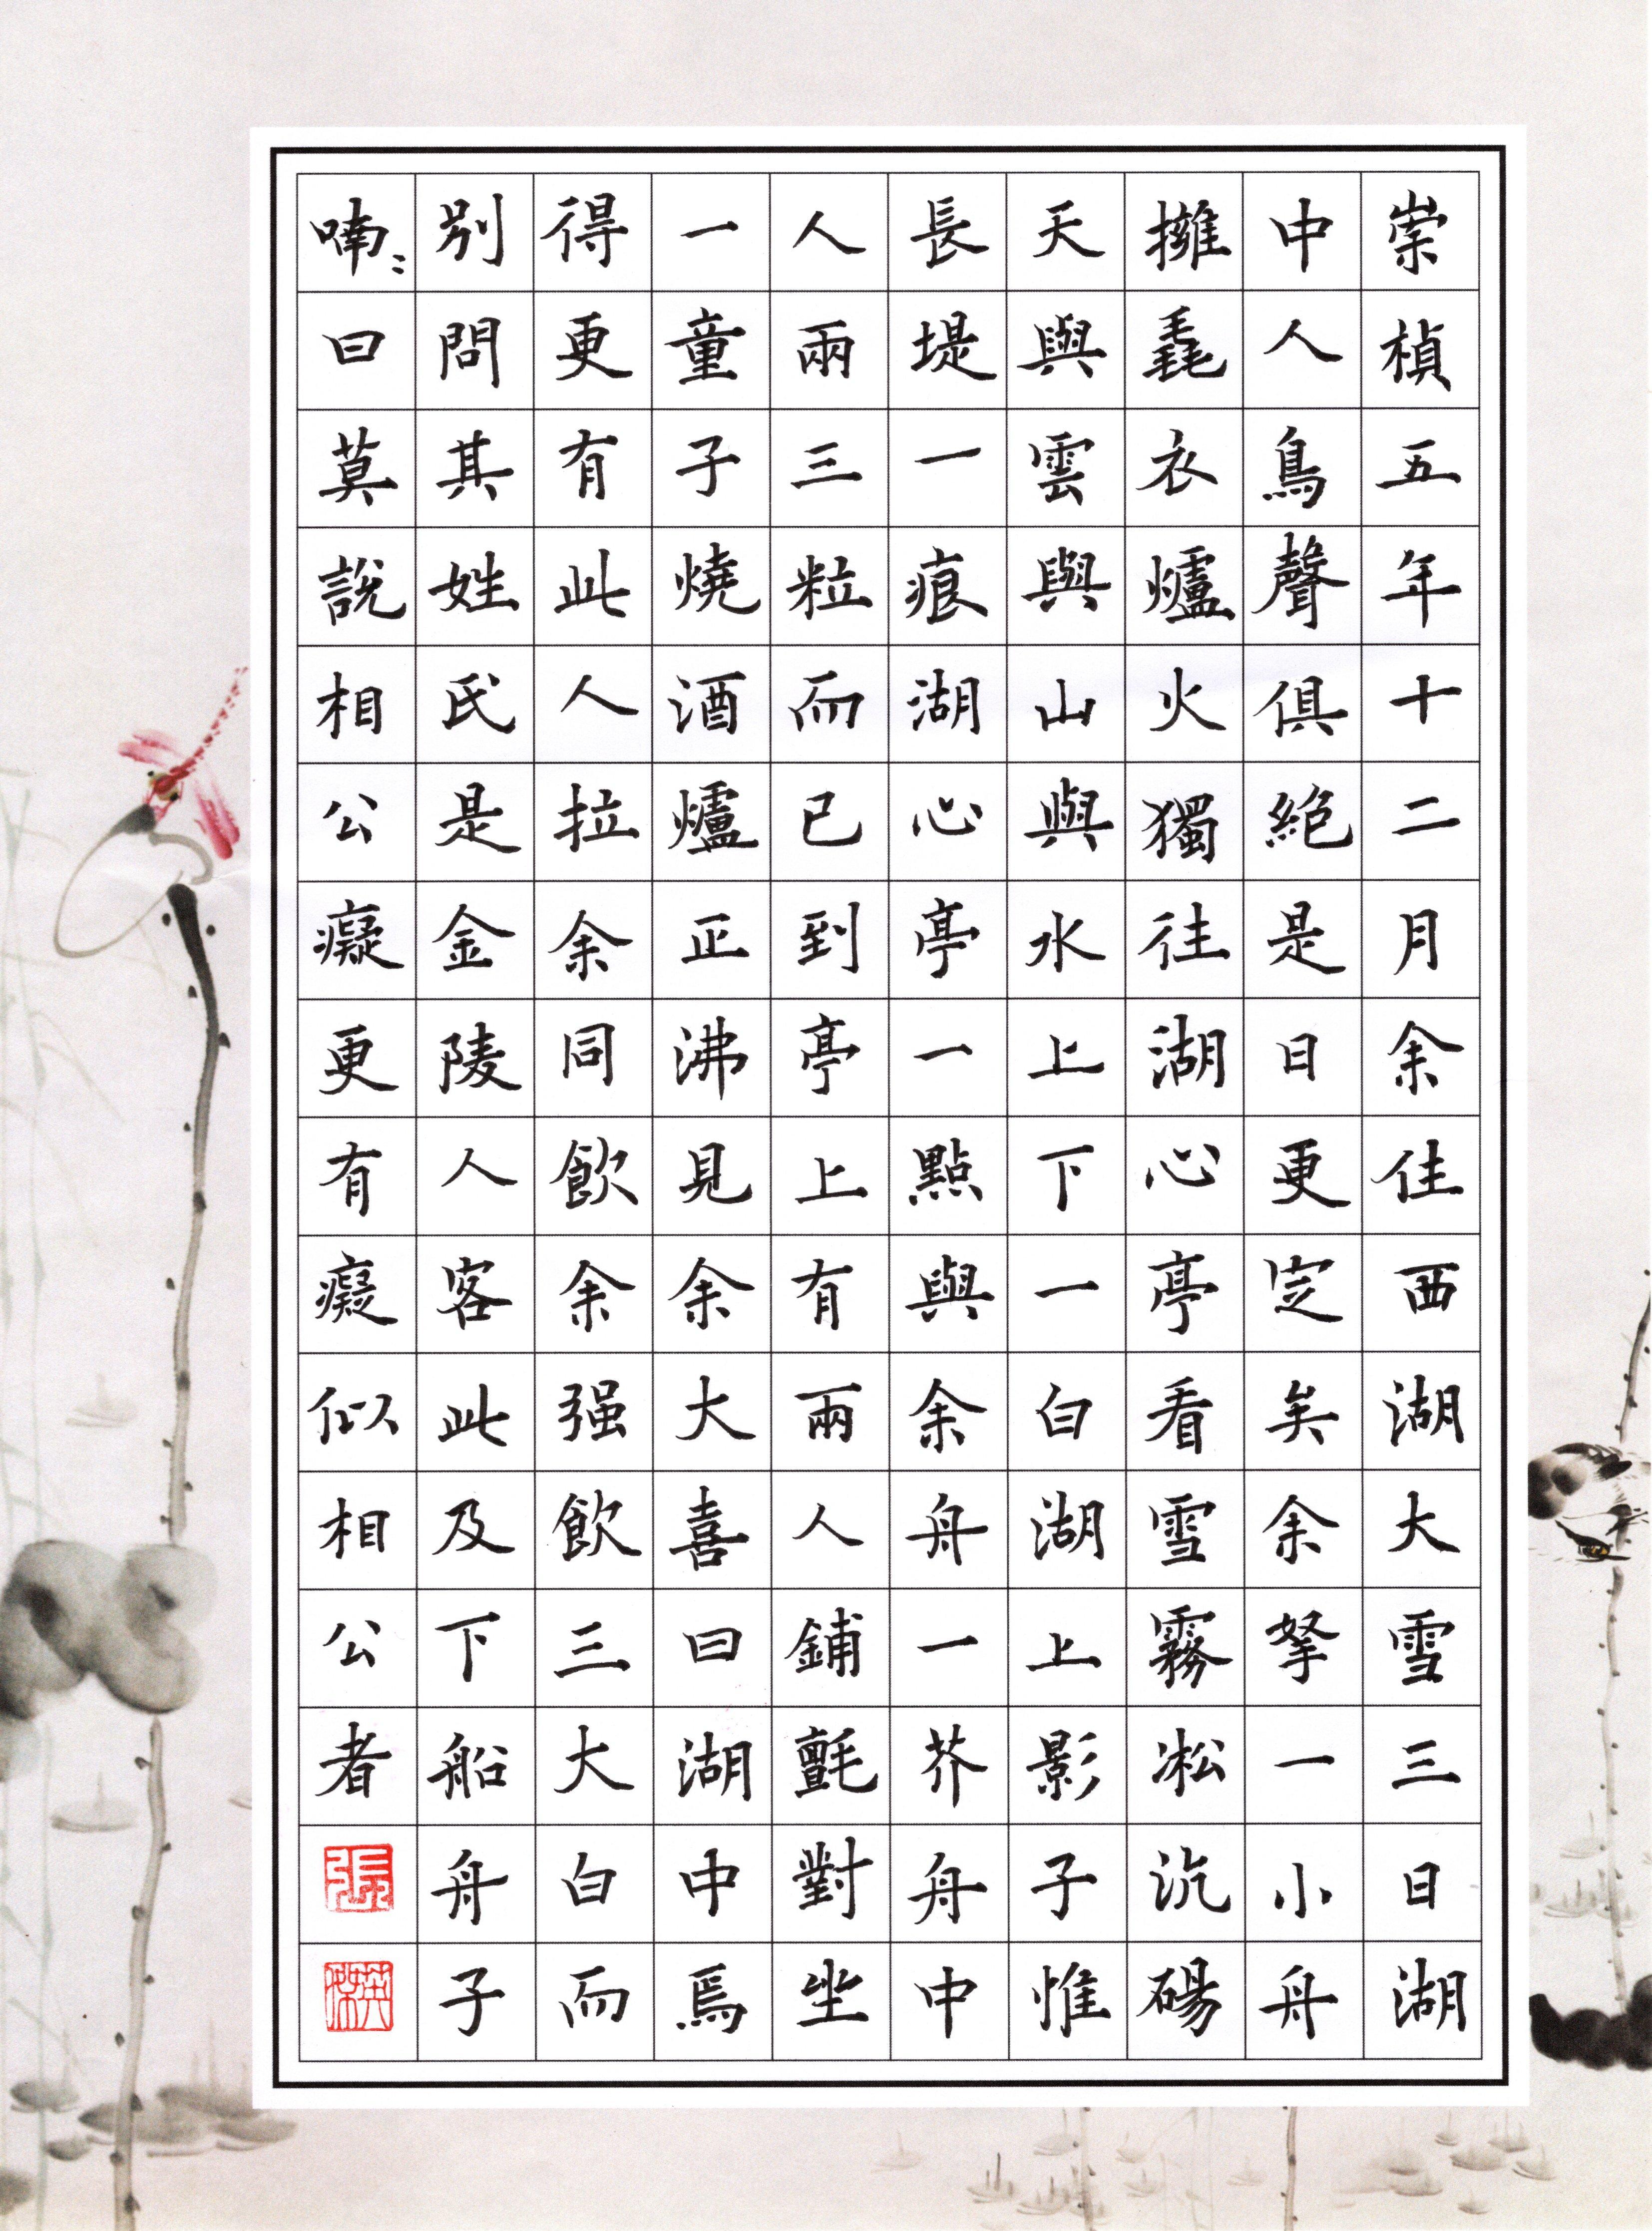 崇禎五年十二月余住西湖大雪三日湖
中人鳥聲俱絕是日更定矣余拏一小舟
擁毳衣爐火獨往湖心亭看雪霧凇沆碭
天與雲與山與水上下一白湖上影子惟
長堤一痕湖心亭一點與余舟一芥舟中
人兩三粒而已到亭上有兩人鋪氈對坐
一童子燒酒爐正沸見余大喜曰湖中焉
得更有此人拉余同飲余强飲三大白而
別問其姓氏是金陵人客此及下船舟子
喃〻曰莫說相公癡更有癡似相公者
張